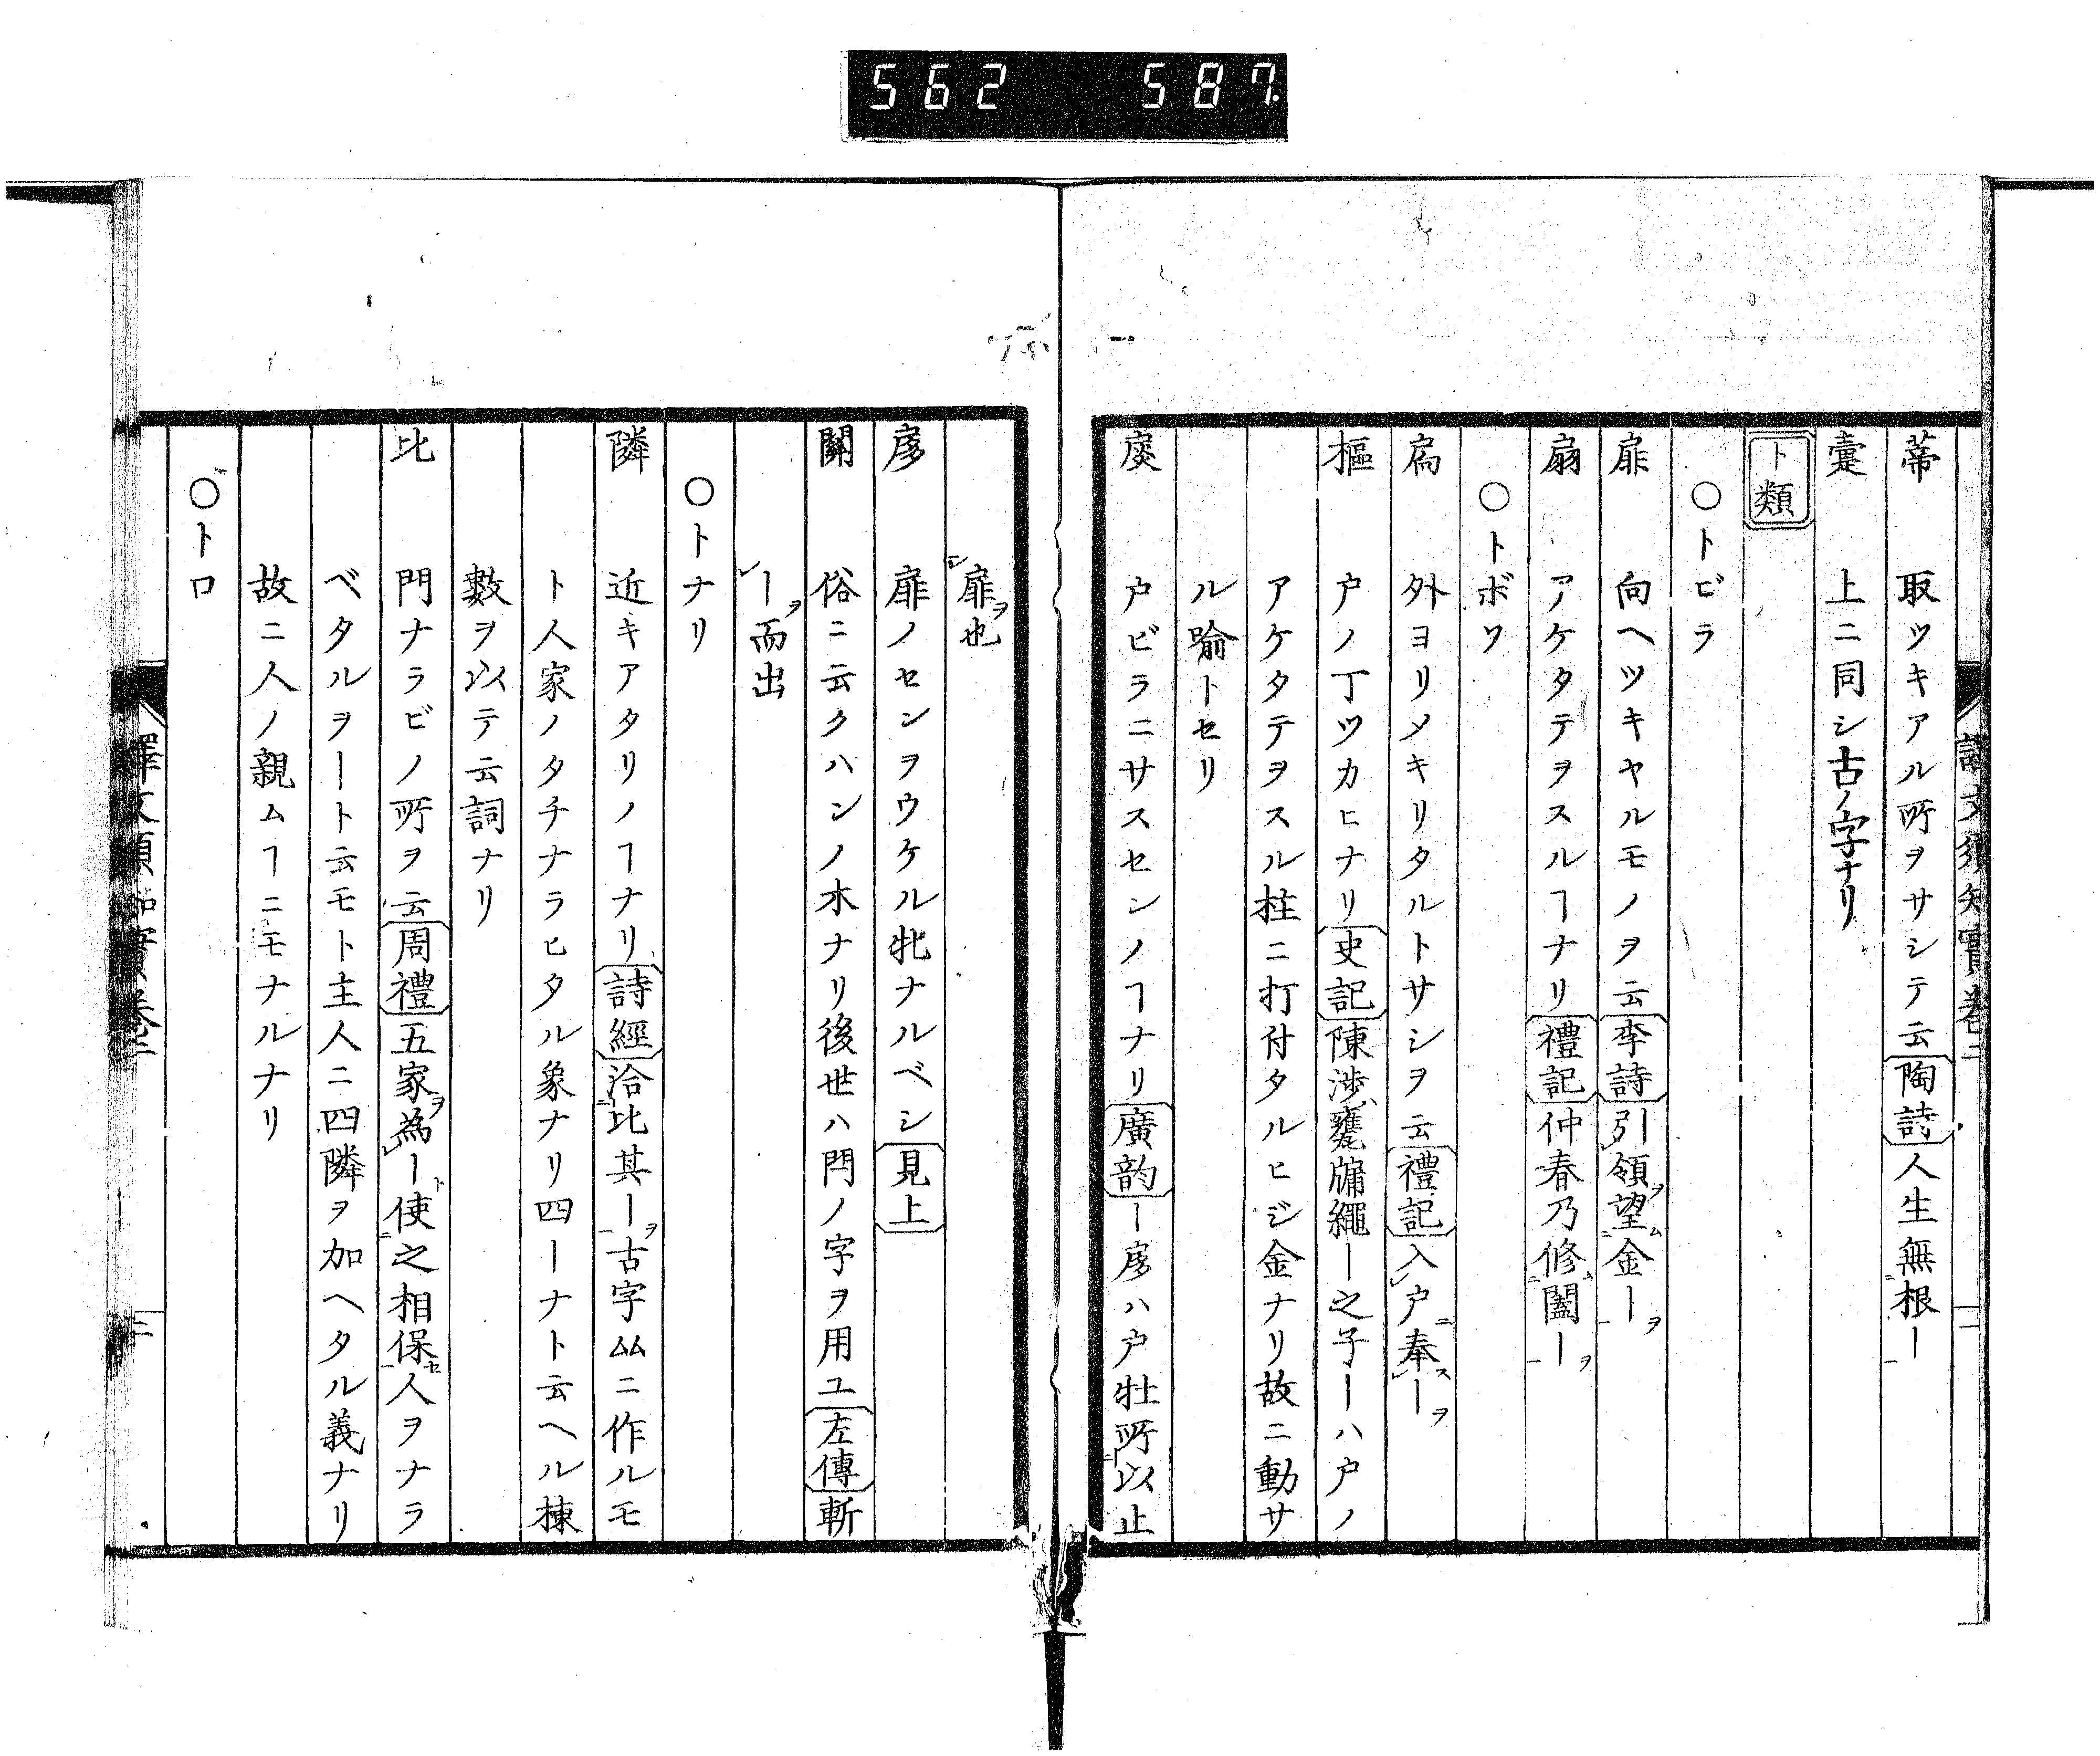 562 587.
蔕 取ツキアル所ヲサシテ云陶詩人生無根ー
疐 上ニ同シ古ノ字ナリ
ト類
○トビラ
扉 向ヘツキヤルモノヲ云李詩引領望金ー
扇 アケタテヲスルヿナリ禮記仲春乃修闔ー
○トボソ
扃 外ヨリメキリタルトサシヲ云禮記入戸奉ー
樞 戸ノ丁ツカヒナリ史記陳渉甕牖繩ー之子ーハ戸ノ
アケタテヲスル柱ニ打付タルヒジ金ナリ故ニ動サ
ル喻トセリ
扊 戸ビラニサスセンノヿナリ廣韵ー扅ハ戸牡所以止
扉也
扅 扉ノセンヲウケル牝ナルベシ見上
關 俗ニ云クハンノ木ナリ後世ハ閂ノ字ヲ用ユ左傳斬
ー而出
○トナリ
隣 近キアタリノヿナリ詩經洽比其ー古字厸ニ作ルモ
ト人家ノタチナラヒタル象ナリ四ーナト云ヘル棟
數ヲ以テ云詞ナリ
比 門ナラビノ所ヲ云周禮五家為ー使之相保人ヲナラ
ベタルヲート云モト主人ニ四隣ヲ加ヘタル義ナリ
故ニ人ノ親ムヿニモナルナリ
○トロ